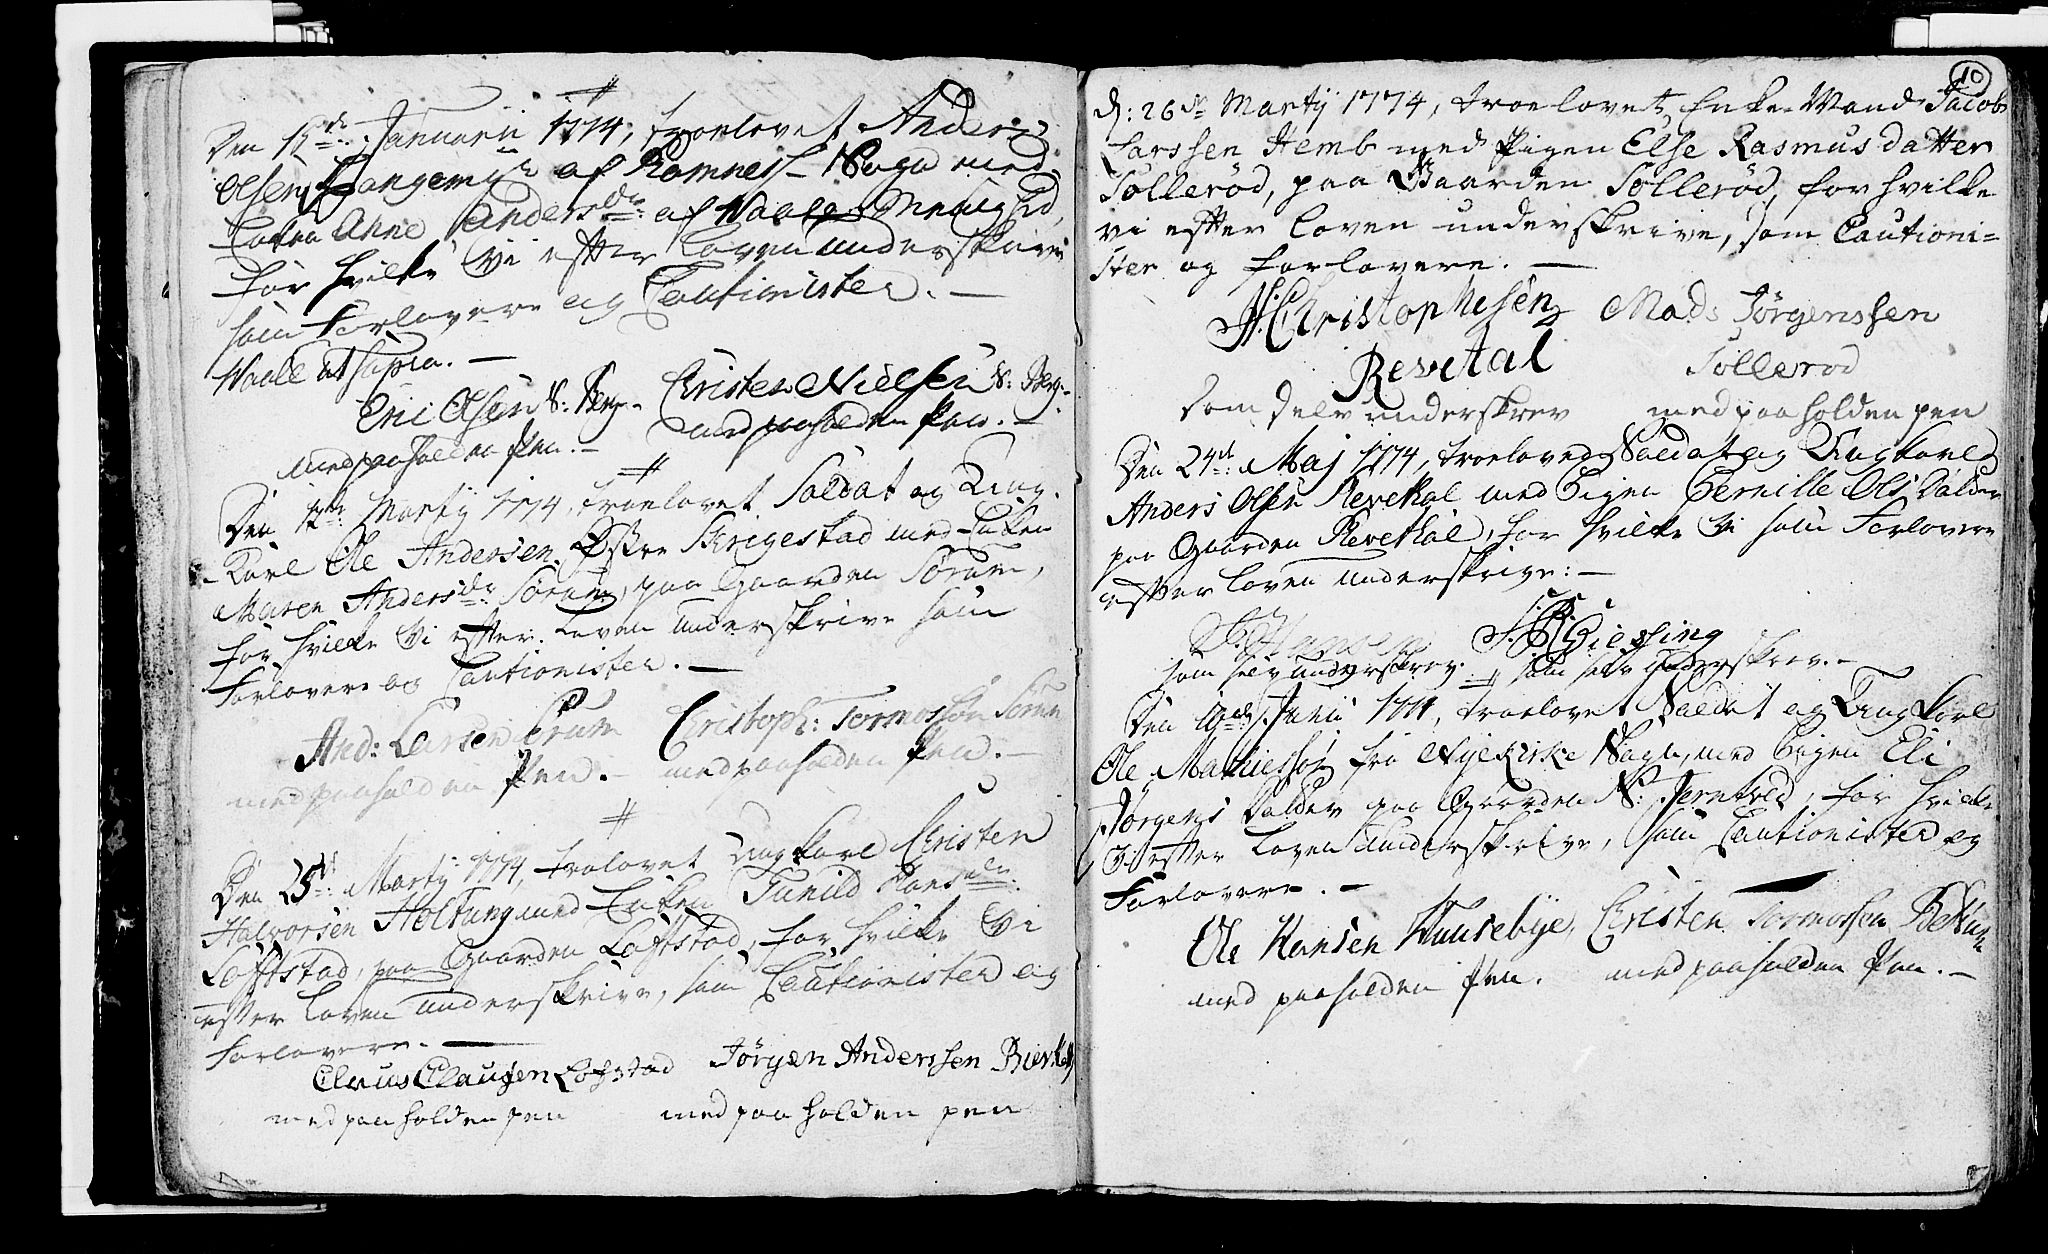 Den 15de Januarii 1774, troelovet Anders
Olsen Langemyr af Ramness Sogn med
Enken Anne Andersdr: af Waale Menighed,
for hvilke Vi efter Loven underskrive
som Forlovere og Cautionister. —
Waale ut supra. —
Eric Olsen N: Berg. Christen Nielsen N: Berg.
med paaholden Pen. — med paaholden Pen. —
Den Marty 1774, troelovet Soldat og Ung-
Karl Ole Andersen Østre Skrigestad med Enken
Maren Andersdr: Sørum, paa Gaarden Sørum,
for hvilke Vi efter Loven underskrive som
Forlovere og Cautionister. —
And: Larsen Sørum Christoph: Tormossøn Sørum
med paaholden Pen. — med paaholden Pen. —
Den 25de: Marty 1774, trolovet Ungkarl Christen
Halvorsen Holtung med Enken Gunild Hansdr:
Løftstad, paa Gaarden Løftstad, for hvilke Vi
efter Loven underskrive, som Cautionister og
Forlovere. —
Claus Clausen Løfstad Jørgen Anderssen Bierke
med paaholden pen med paaholden pen
10
d: 26de Martÿ 1774, troelovet Enke-Mand Jacob
Larssen Hemb med Pigen Else Rasmusdatter
Sollerød, paa Gaarden Sollerød, for hvilke
vi efter loven underskrive, som Cautioni=
ster og forlovere. —
H: Christophersen Mads Jørgenssen
Revetal Sollerød
Som Selv underskrev med paaholden pen
Den 24de: Maj 1774, troeloved Soldat og Ungkarl
Anders Olsen Revetal med Pigen Pernille Ols Datter
paa Gaarden Revetal, for hvilke Vi som Forlovere
efter Loven underskrive: —
Hansen Giessing
som selv underskrev. som selv underskrev. —
Den Junii 1774, troelovet Soldat og Ungkarl
Ole Mathiessøn fra Nyekirke Sogn, med Pigen Eli
Jørgens Datter paa Gaarden N: Jerntved, for hvilke
Vi efter Loven underskrive, som Cautionister og
Forlovere. —
Ole Hansen Huusebye, Christen Tormossen
med paaholden Pen. med paaholden Pen. —